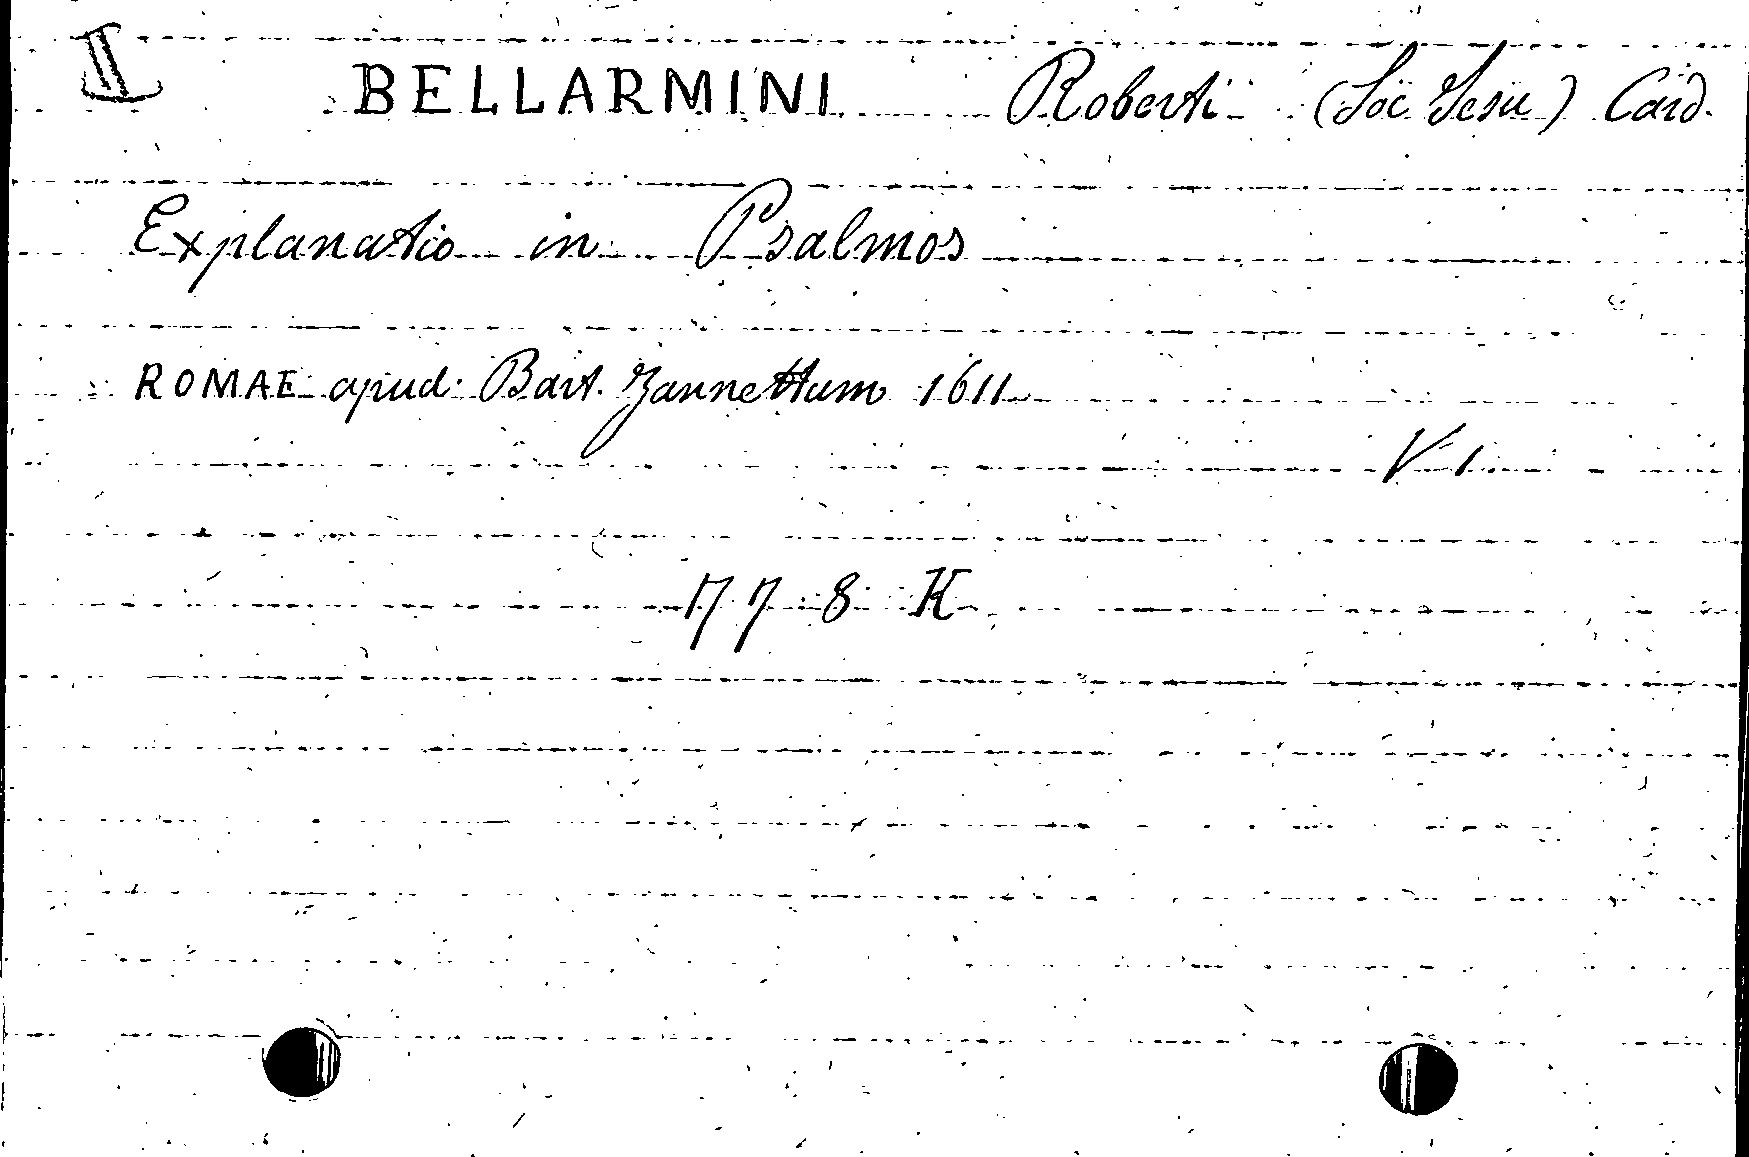 II BELLARMINI Roberti (Soc Jesu) Card.
Explanatio in Psalmos
ROMAE apud Bart. Zannettum 1611
V 1
17 7 8 K